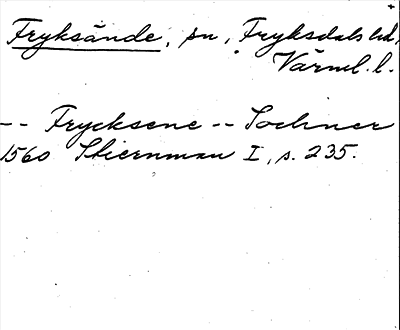 Fryksände, sn, Fryksdals hd,
Värml. l.
-- Frycksene -- Sochner
1560 Stiernman I, s. 235.